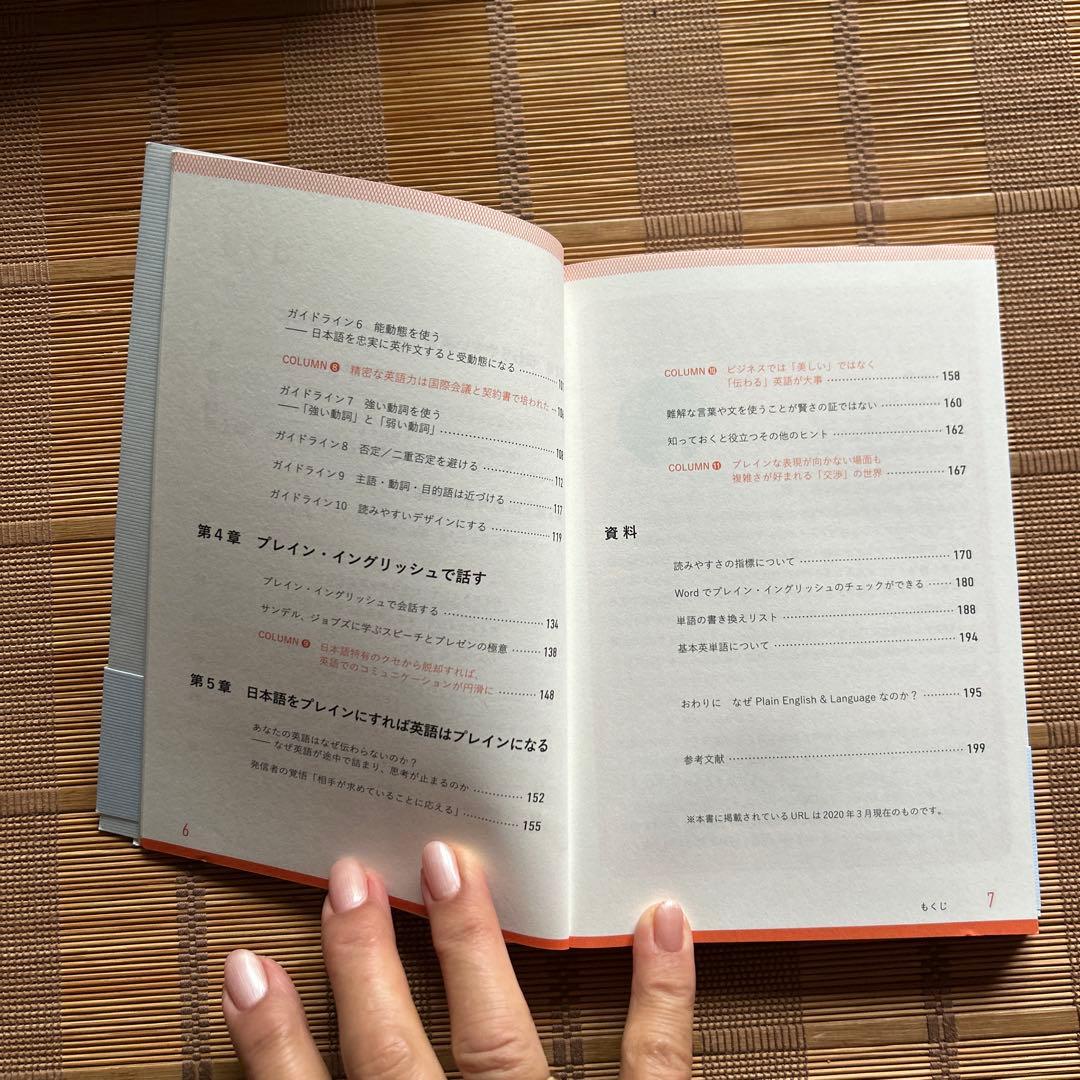 ガイドライン6 能動態を使う
── 日本語を忠実に英作文すると受動態になる
COLUMN ⑧ 精密な英語力は国際会議と契約書で培われた
ガイドライン7 強い動詞を使う
──「強い動詞」と「弱い動詞」 108
ガイドライン8 否定／二重否定を避ける 112
ガイドライン9 主語・動詞・目的語は近づける 117
ガイドライン10 読みやすいデザインにする 119
第4章 プレイン・イングリッシュで話す
プレイン・イングリッシュで会話する 134
サンデル、ジョブズに学ぶスピーチとプレゼンの極意 138
COLUMN ⑨ 日本語特有のクセから脱却すれば、
英語でのコミュニケーションが円滑に 148
第5章 日本語をプレインにすれば英語はプレインになる
あなたの英語はなぜ伝わらないのか？
── なぜ英語が途中で詰まり、思考が止まるのか 152
発信者の覚悟「相手が求めていることに応える」 155
6
COLUMN ⑩ ビジネスでは「美しい」ではなく
「伝わる」英語が大事 158
難解な言葉や文を使うことが賢さの証ではない 160
知っておくと役立つその他のヒント 162
COLUMN ⑪ プレインな表現が向かない場面も
複雑さが好まれる「交渉」の世界 167
資料
読みやすさの指標について 170
Word でプレイン・イングリッシュのチェックができる 180
単語の書き換えリスト 188
基本英単語について 194
おわりに なぜ Plain English & Language なのか？ 195
参考文献 199
※本書に掲載されている URL は 2020 年 3 月現在のものです。
もくじ 7